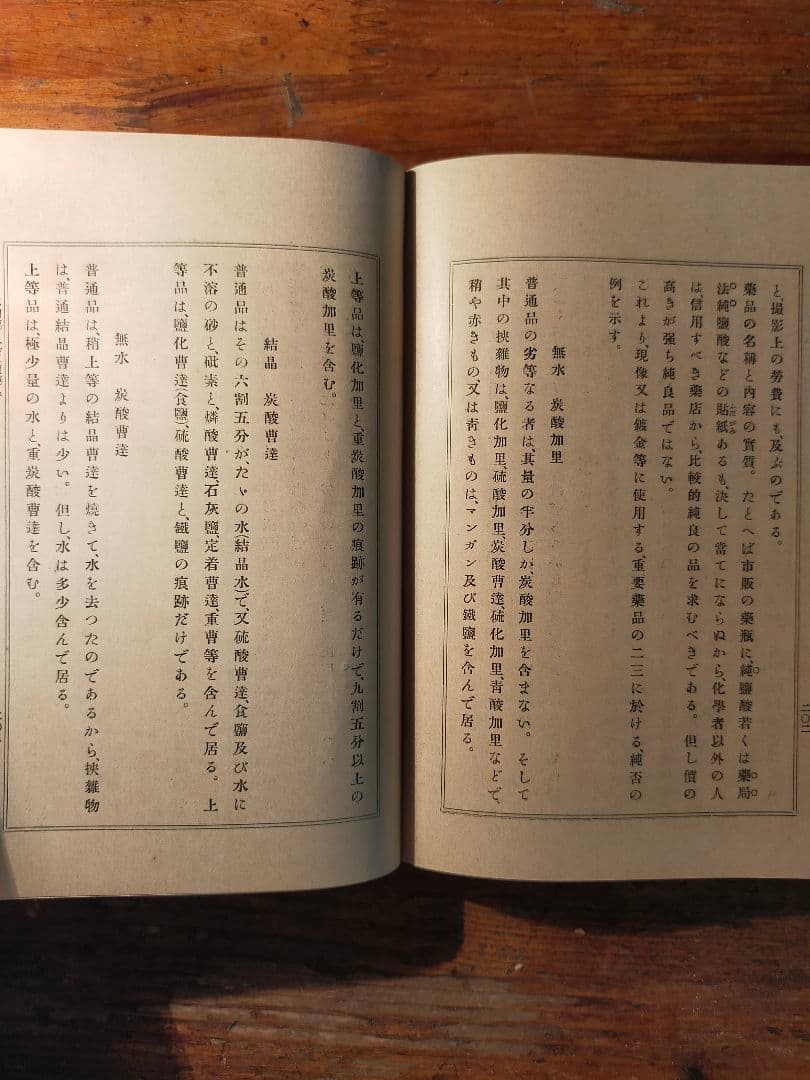 と、撮影上の勞費にも及ぶのである。
藥品の名稱と內容の實質。たとへば市販の藥瓶に、純鹽酸若くは藥局
法純鹽酸などの貼紙あるも、決して當てにならぬから、化學者以外の人
ふだがみ
は、信用すべき藥店から、比較的純良の品を求むべきである。但し價の
高きが强ち純良品ではない。
これより、現像又は鍍金等に使用する、重要藥品の二三に於ける、純否の
例を示す。
無水 炭酸加里
普通品の劣等なる者は、其量の半分しか、炭酸加里を含まない。そして
其中の挾雜物は、鹽化加里、硫酸加里、炭酸曹達、硫化加里、靑酸加里などで、
稍や赤きもの又は靑きものは、マンガン及び鐵鹽を含んで居る。
二〇二
上等品は、鹽化加里と、重炭酸加里の痕跡が有るだけで、九割五分以上の
炭酸加里を含む。
結晶 炭酸曹達
普通品はその六割五分が、たゞの水(結晶水)で、又硫酸曹達、食鹽及び水に
不溶の砂と、砒素と、燐酸曹達、石灰鹽、定着曹達、重曹等を含んで居る。上
等品は、鹽化曹達(食鹽)、硫酸曹達と、鐵鹽の痕跡だけである。
無水 炭酸曹達
普通品は、稍上等の結晶曹達を燒きて、水を去つたのであるから、挾雜物
は、普通結晶曹達よりは少い。但し、水は多少含んで居る。
上等品は、極少量の水と、重炭酸曹達を含む。